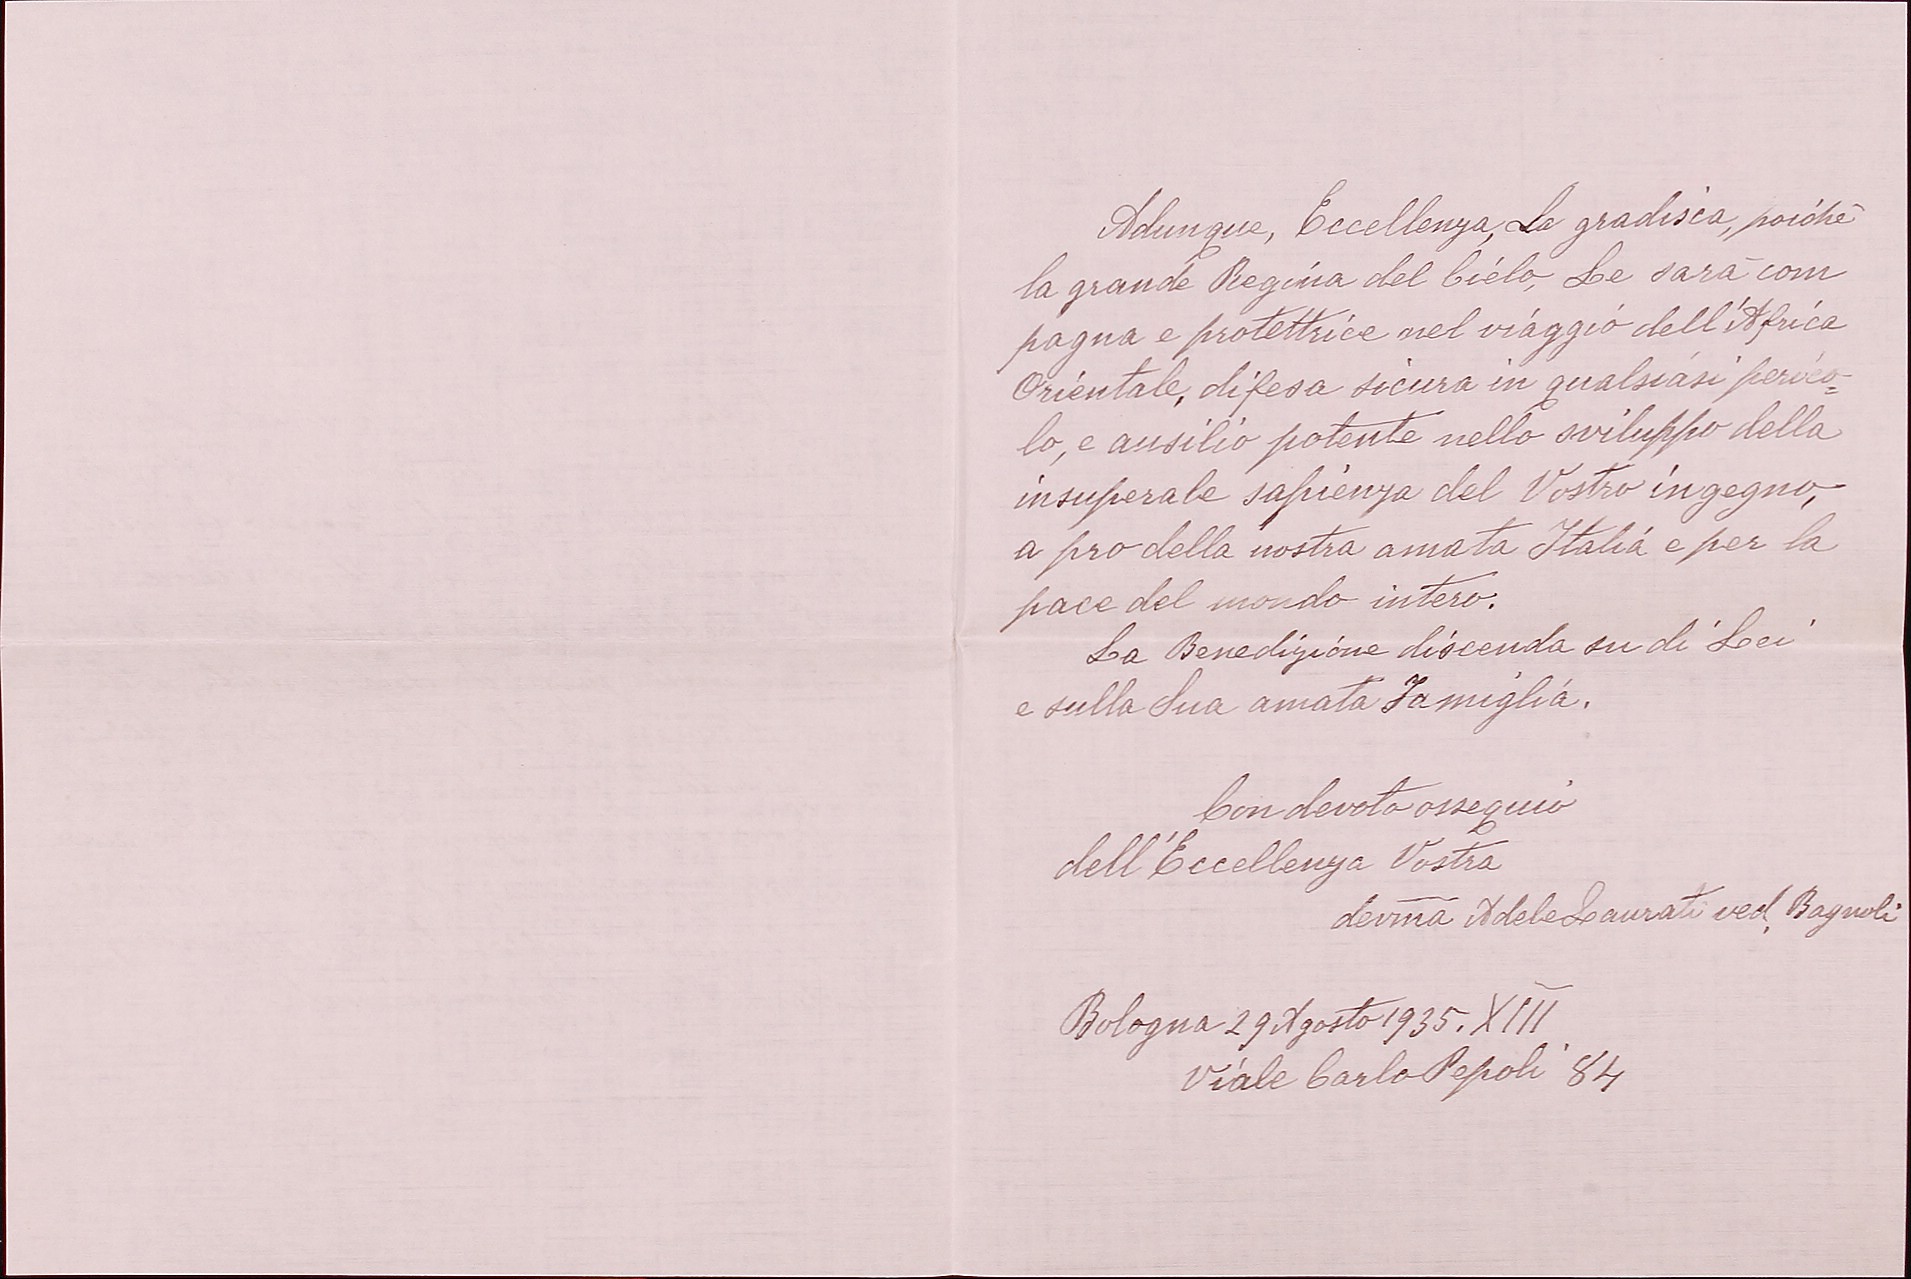 Adunque, Eccellenza, La gradisca, poichè
la grande Regina del Cielo, Le sarà com
pagna e protettrice nel viaggio dell'Africa
Orientale, difesa sicura in qualsiasi perico=
lo, e ausilio potente nello sviluppo della
insuperale sapienza del Vostro ingegno,
a pro della nostra amata Italia e per la
pace del mondo intero.
La Benedizione discenda su di Lei
e sulla Sua amata Famiglia.
Con devoto ossequio
dell'Eccellenza Vostra
devma Adele Laurati ved. Bagnoli
Bologna 29 Agosto 1935. XIII
Viale Carlo Pepoli 84